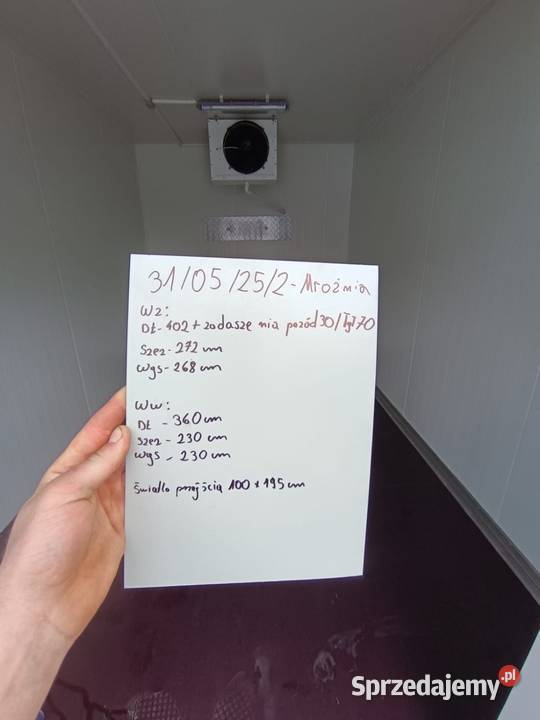 31/05/25/2-Mroźnia
Wz:
Dł-402+zadasze nia pozód 30/Tył 70
Szez-272 cm
Wgs-268 cm
Ww:
Dł - 360 cm
Szez - 230 cm
Wgs - 230 cm
światło przejścia 100 x 195 cm
Sprzedajemy.pl